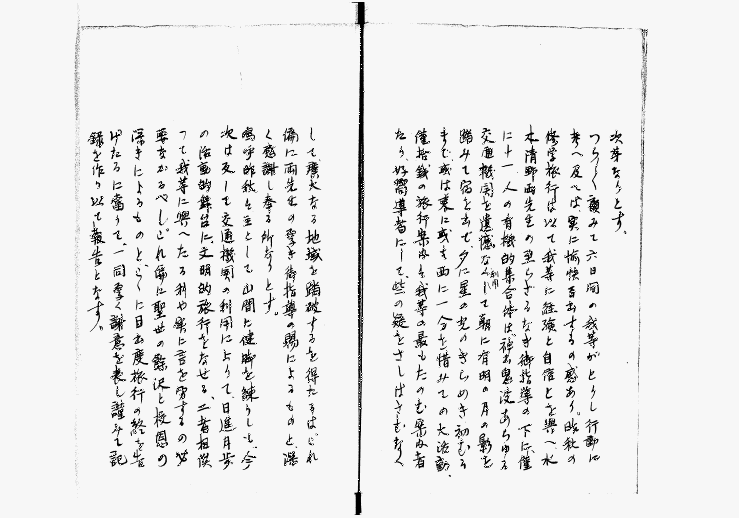 次第なりとす。
つらつら顧みて六日間の我等がとりし行動に
考へ及べば実に愉快百出するの感あり。昨秋の
修学旅行は以て我等に経験と自信とを與へ水
本清野両先生の至らざるなき御指導の下に僅
に十一人の有機的集合体は神出鬼没あらゆる
交通機関を遺憾なく利用して朝に有明の月の影を
踏みて宿を出で、夕に星の光のきらめき初むる
まで或は東に或は西に一分を惜みての大活動、
僅拾銭の旅行案内を我等の最もたのむ案内者
たり、好嚮導者にして、些の疑をさしはさむなく
して、廣大なる地域を踏破するを得たるはこれ
偏に両先生の厚き御指導の賜によるものと、深
く感謝し奉る所なりとす。
嗚呼昨秋は主として山間に健脚を練りしも、今
次は反して交通機関の利用によりて、日進月歩
の活動的舞台に文明的旅行をなせる、二者相俟
つて我等に與へたる利や実に言を労するの必
要なかるべし。これ偏に聖世の餘沢と校恩の
深きによるものと、こゝに目出度旅行の終を告
げたるに當りて、一同厚く謝意を表し謹みて記
録を作り以て報告となす。